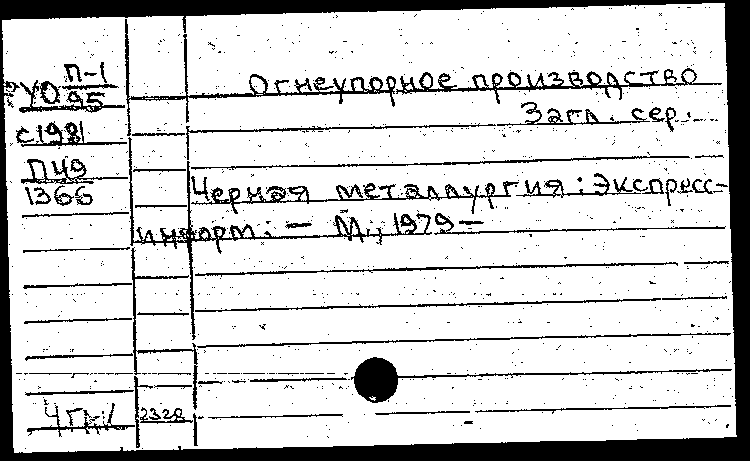 П-1
УО 95
Огнеупорное производство
Загл. сер.
с 1981
П49
1366
Черная металлургия: Экспресс-
информ: – М., 1979 –
2328